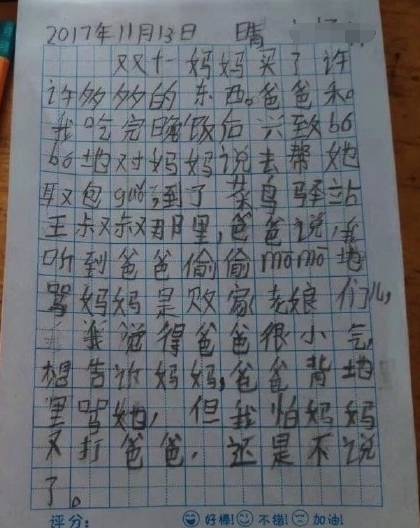 2017年11月13日 晴
双十一妈妈买了许
许多多的东西。爸爸和
我吃完晚饭后兴致bó
bó地对妈妈说去帮她
取包guǒ，到了菜鸟驿站
王叔叔那里，爸爸说，我
听到爸爸偷偷mōmō地
骂妈妈是败家老娘们儿，
我觉得爸爸很小气，
想告诉妈妈，爸爸背地
里骂她，但我怕妈妈
又打爸爸，还是不说
了。
评分： 好棒! 不错! 加油!